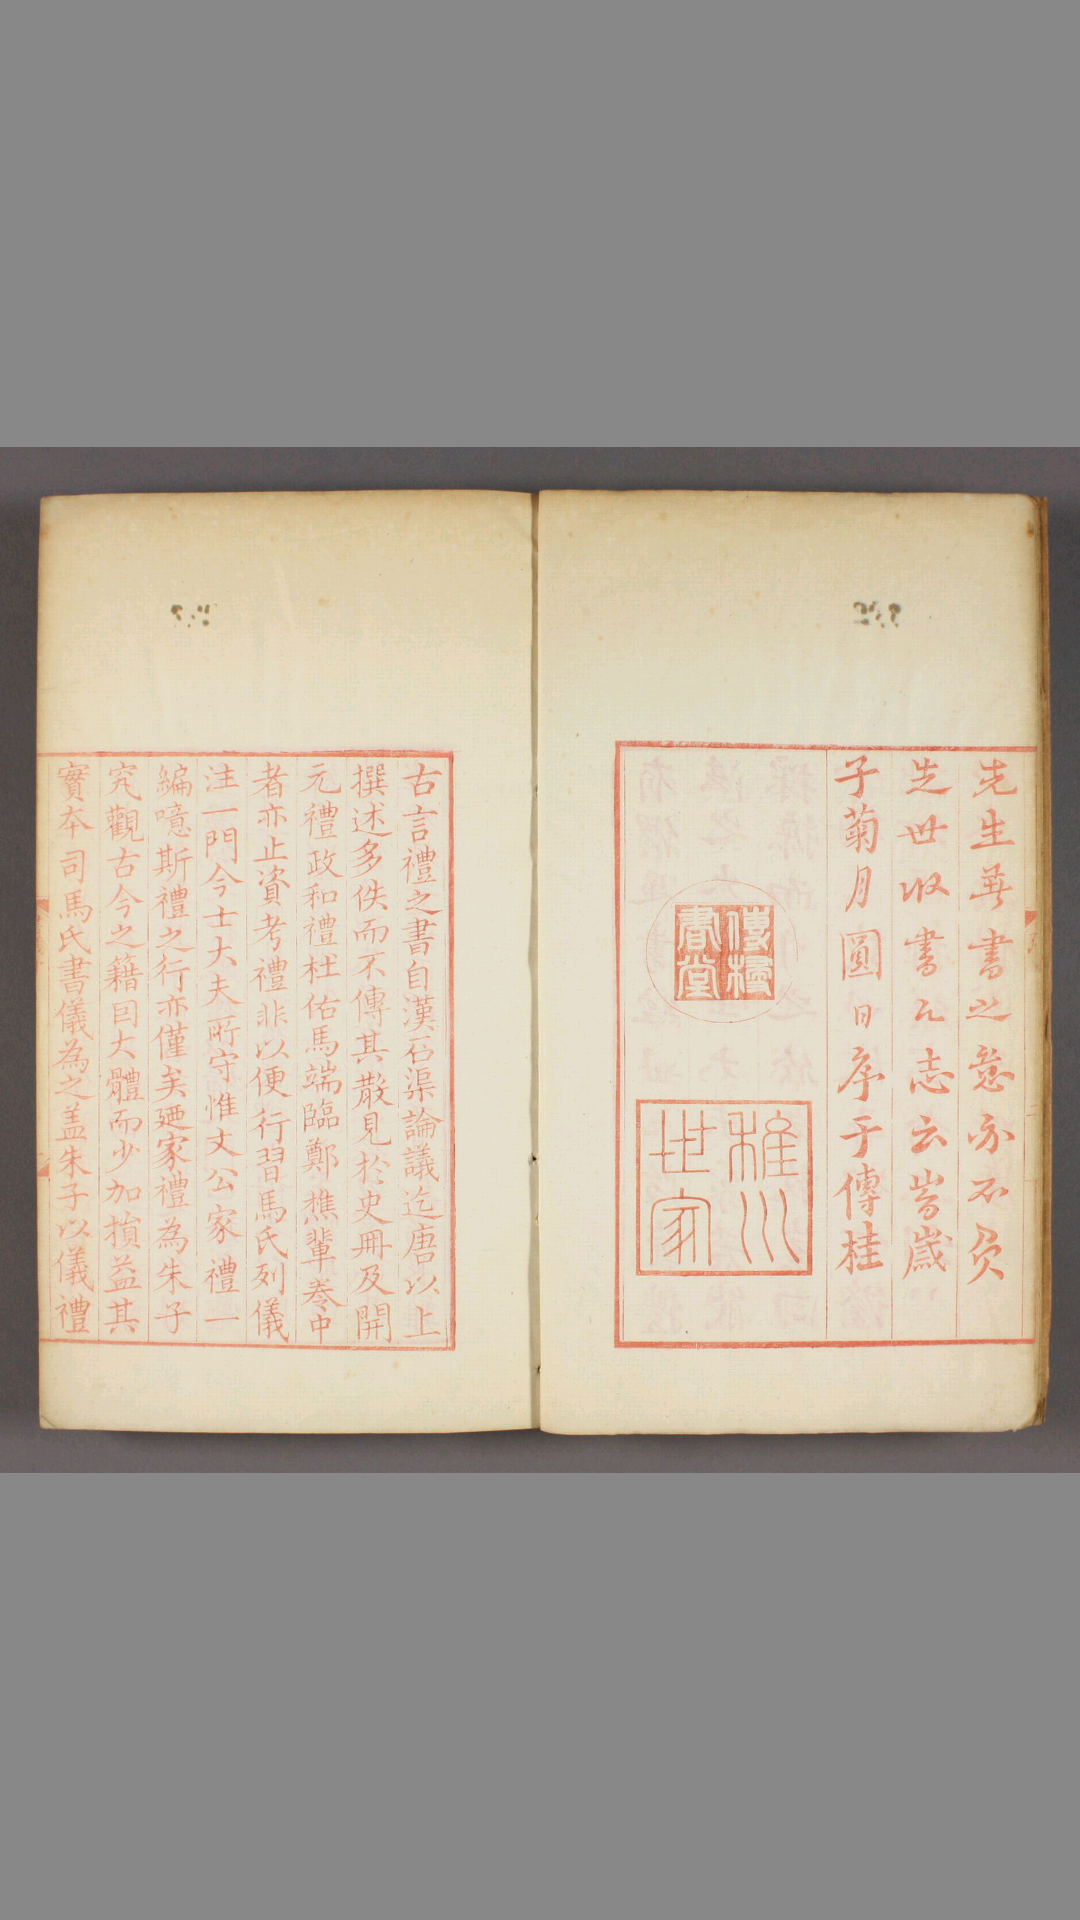 先生書之意亦不負
先世收書之志云旹歲
子菊月圓日序于傳桂
書堂
稚川
世家
古言禮之書自漢石渠論議迄唐以上
撰述多佚而不傳其散見於史冊及開
元禮政和禮杜佑馬端臨鄭樵輩卷中
者亦止資考禮非以便行習馬氏列儀
注一門今士大夫所守惟文公家禮一
編噫斯禮之行亦僅矣廼家禮為朱子
究觀古今之籍因大體而少加損益其
實本司馬氏書儀為之盖朱子以儀禮